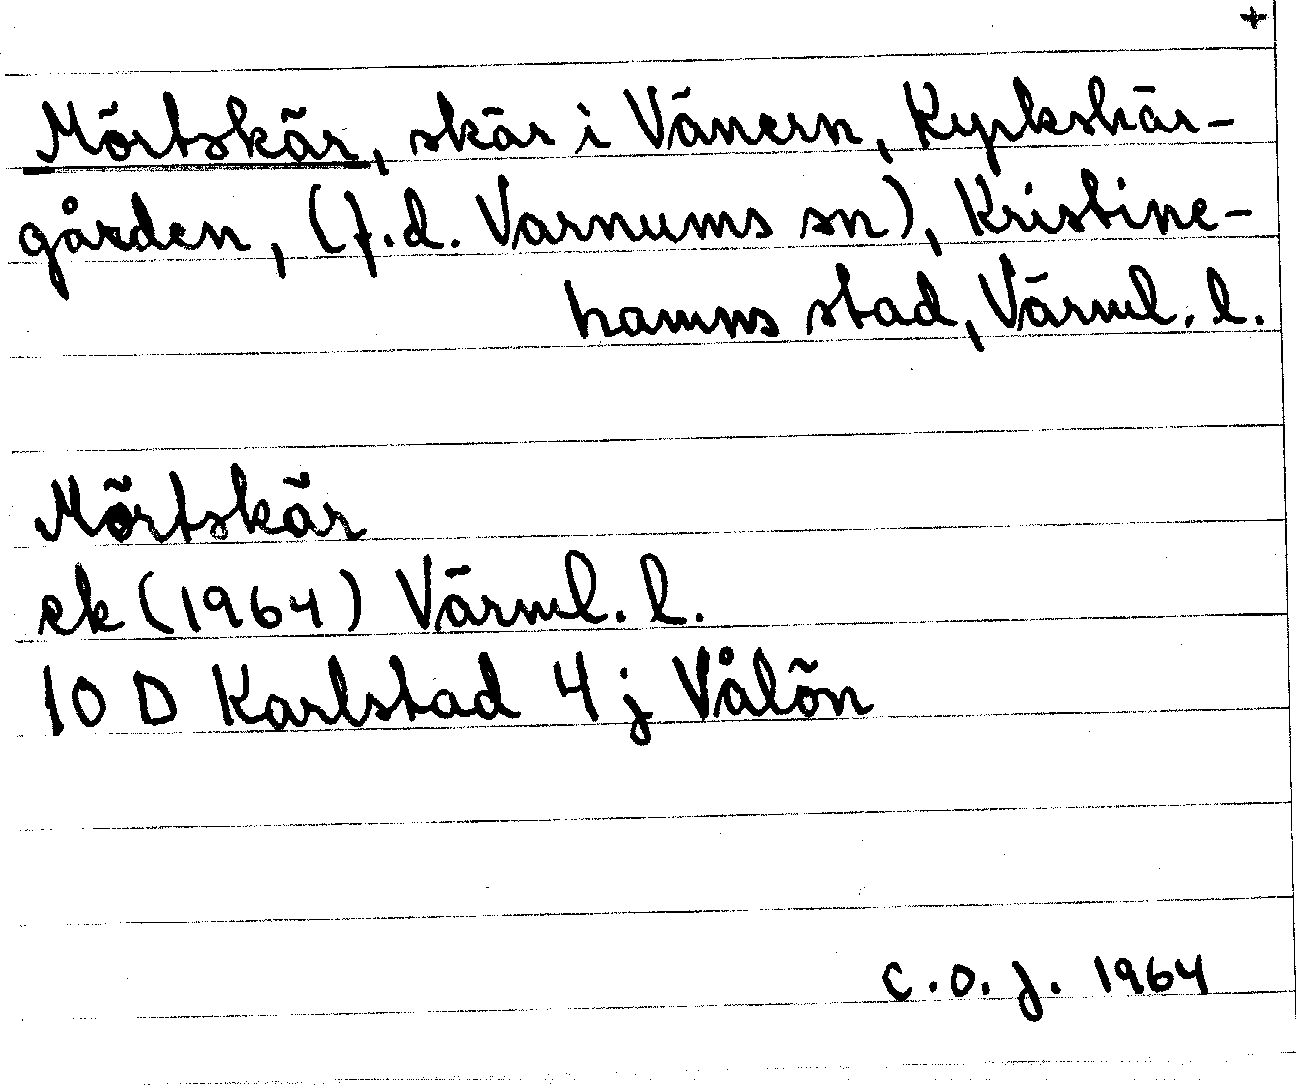 +
Mörtskär, skär i Vänern, Kyrkskär-
gården, (f.d. Varnums sn), Kristine-
hamns stad, Värml. l.
Mörtskär
ek (1964) Värml. l.
10 D Karlstad 4 j Vålön
C.O.J. 1964